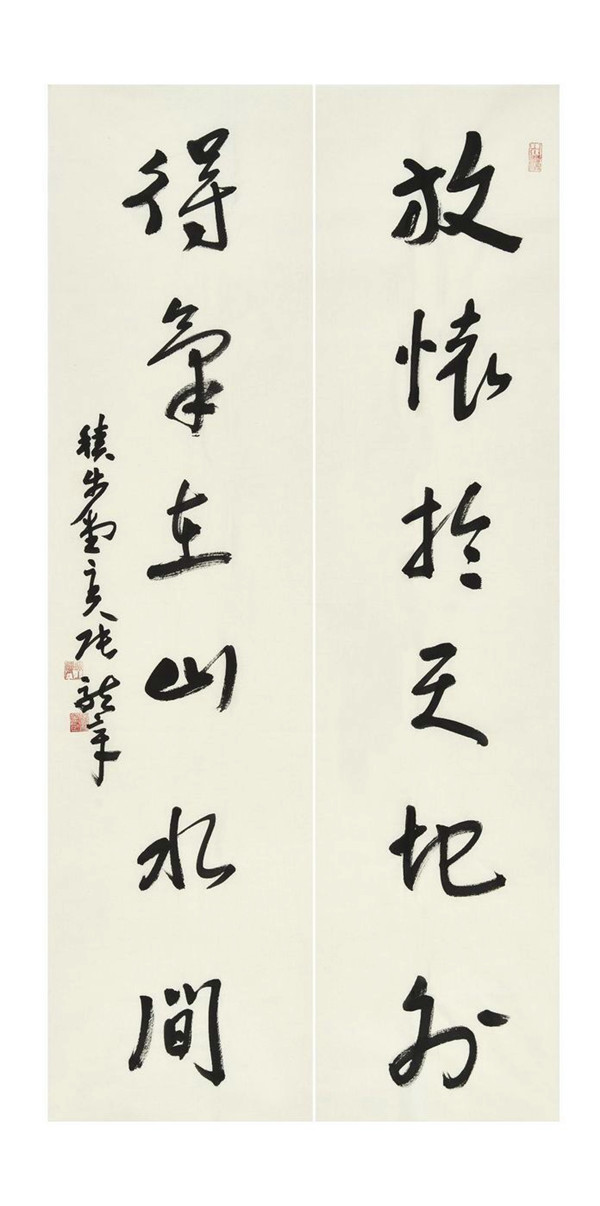 放懷於天地外
得氣在山水間
積步堂